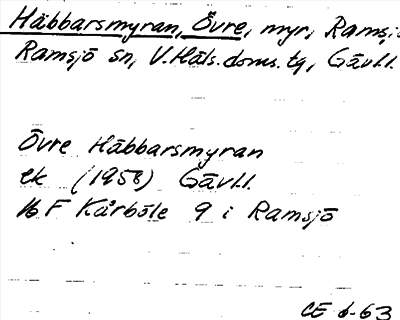 Häbbarsmyran, Övre, myr, Ramsjö
Ramsjö sn, V. Häls. doms. tg, Gävl.l.
Övre Häbbarsmyran
ek (1958) Gävl.l.
16 F Kårböle 9 i Ramsjö
CE 6-63